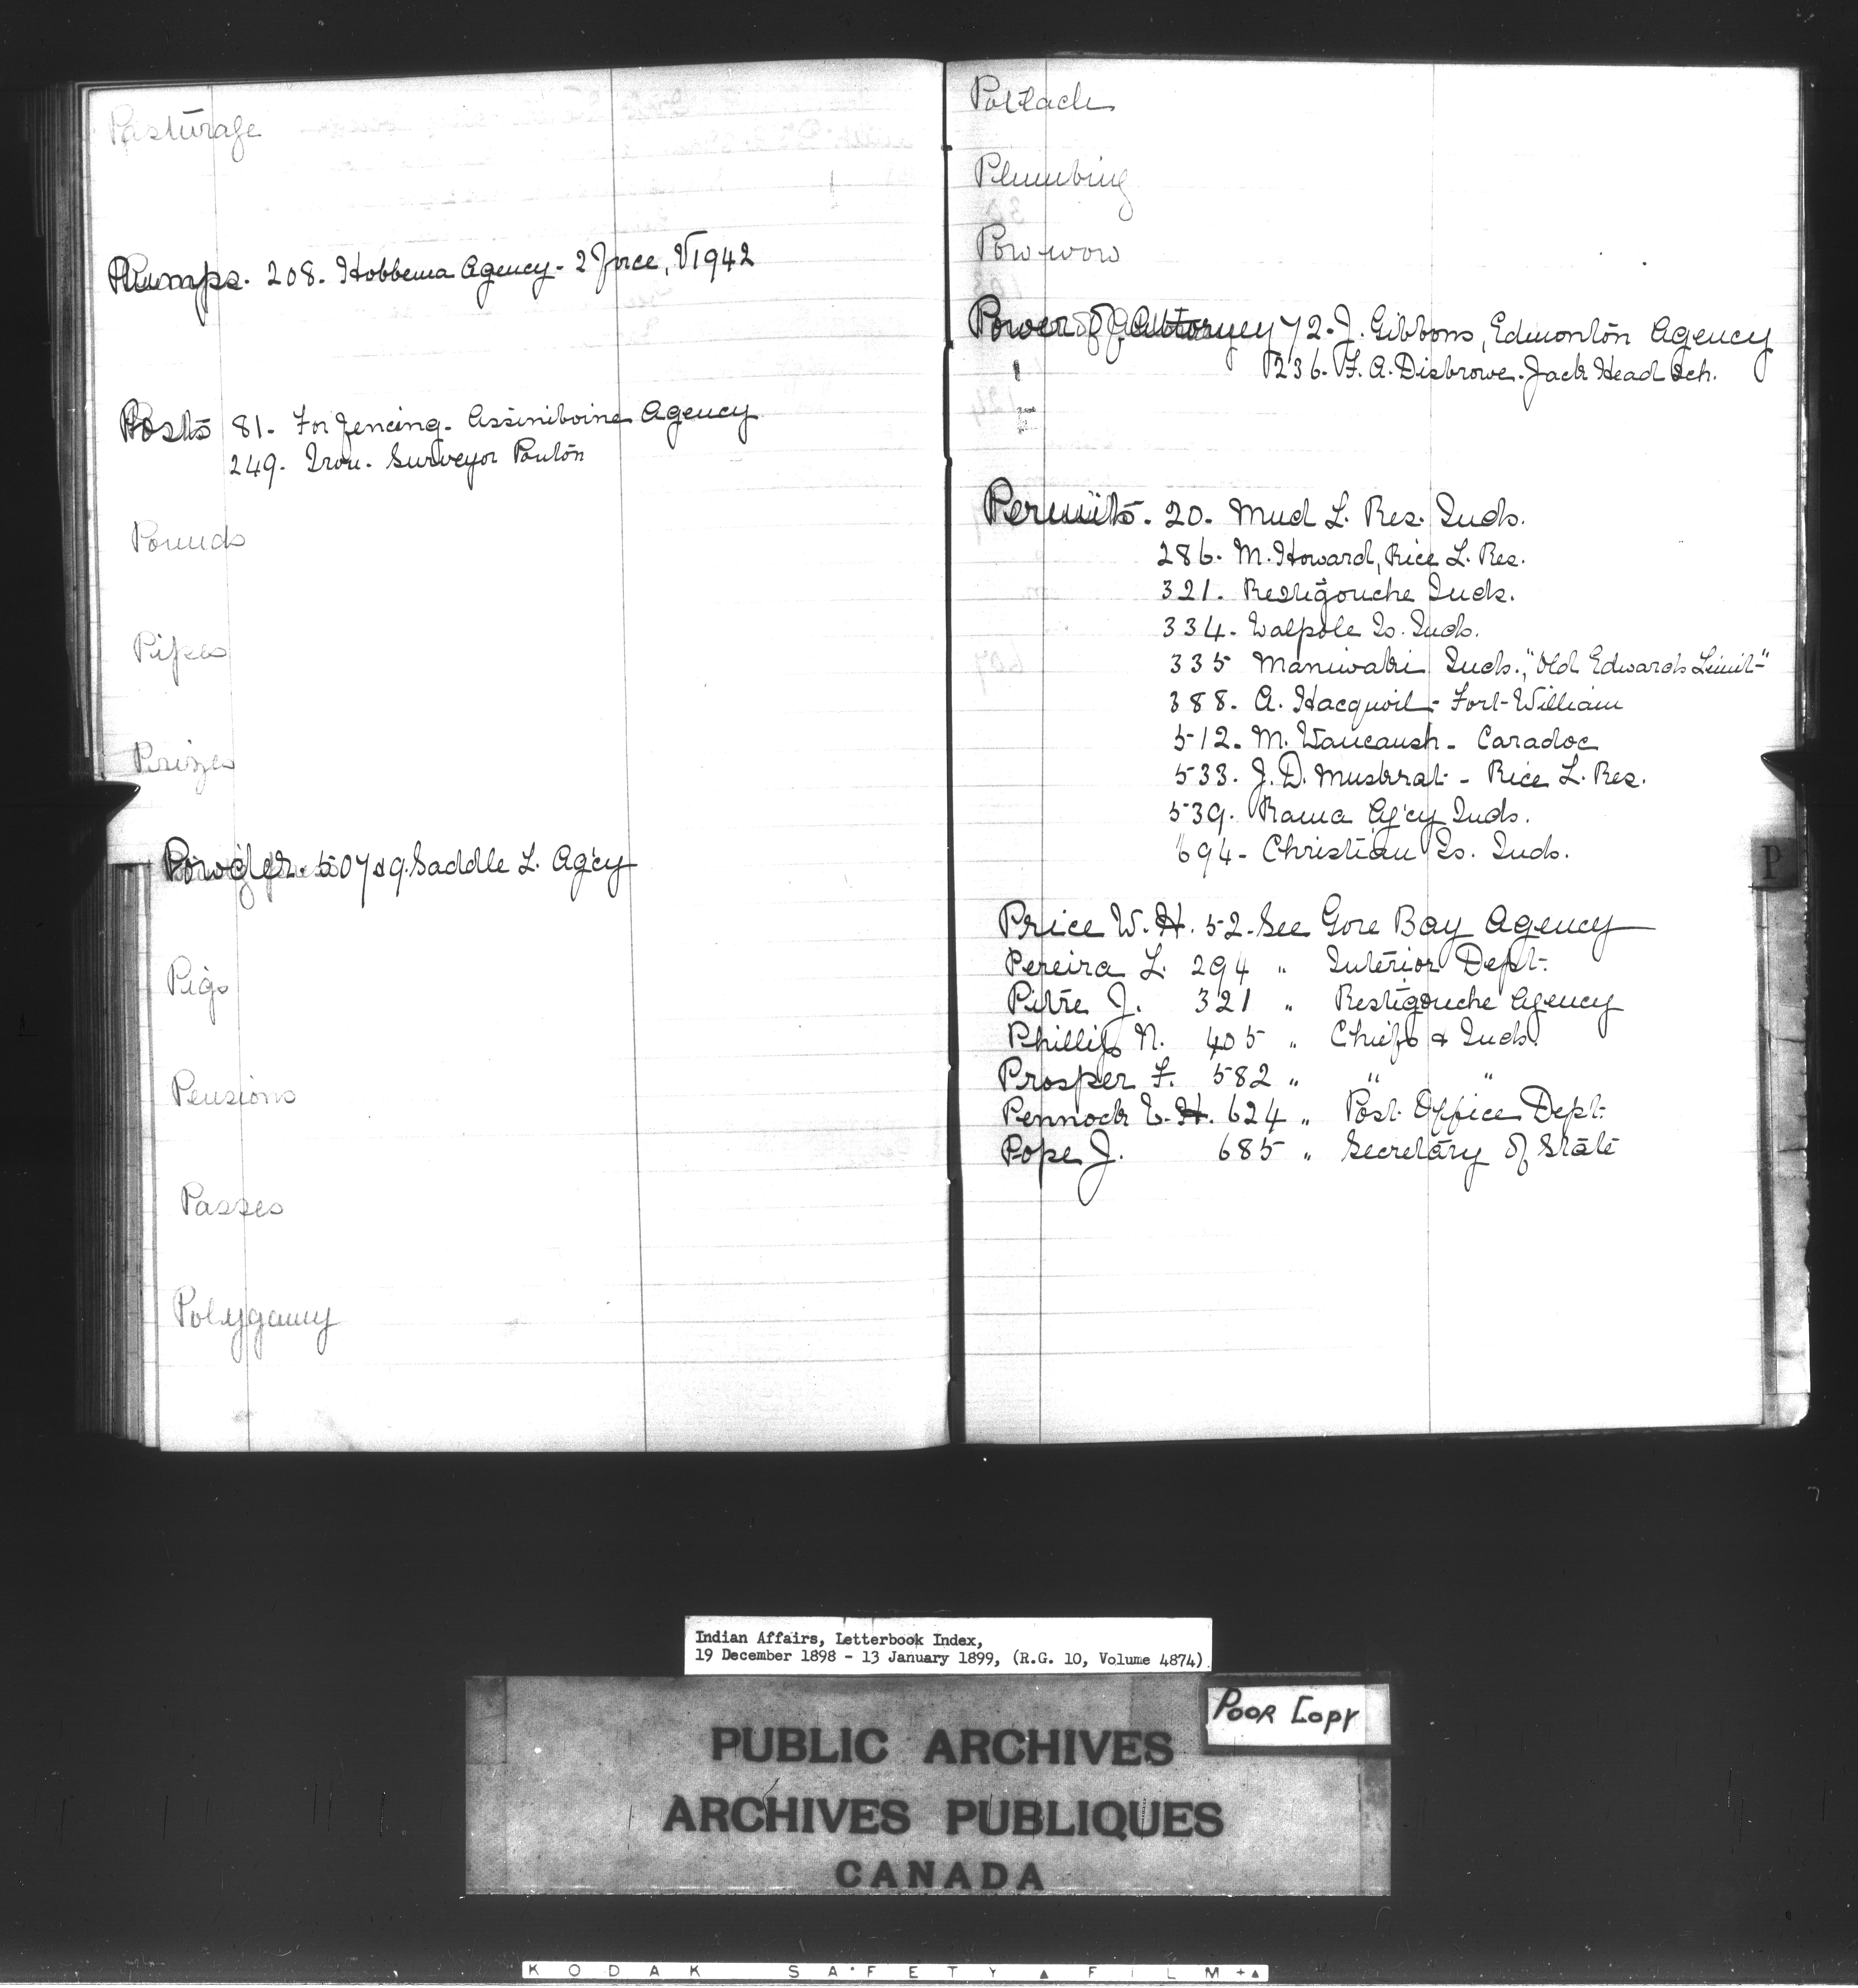 Pasturage
Pumps. 208. Hobbema Agency - 2 force, V1942
Posts 81. For fencing. Assiniboine Agency
249. Iron. Surveyor Ponton
Pounds
Pipes
Prizes
Powder. 507 & 9. Saddle L. Ag'cy
Pigs
Pensions
Passes
Polygamy
Potlach
Plumbing
Pow-wow
Power of Attorney 72. J. Gibbons, Edmonton Agency
236. F. A. Disbrowe. Jack Head Sch.
Permits. 20. Mud L. Res. Inds.
286. M. Howard, Rice L. Res.
321. Restigouche Inds.
334. Walpole Is. Inds.
335 Maniwaki Inds. "Old Edwards Limit"
388. A. Hacquoil - Fort William
512. M. Waucaush - Caradoc
533. J. D. Muskrat - Rice L. Res.
539. Rama Ag'cy Inds.
694 - Christian Is. Inds.
P
Price W. H. 52. See Gore Bay Agency
Pereira L. 294 " Interior Dept.
Pitre J. 321 " Restigouche Agency
Phillips N. 405 " Chiefs & Inds.
Prosper F. 582 " " "
Pennock E. H. 624 " Post Office Dept.
Pope J. 685 " Secretary of State
Indian Affairs, Letterbook Index,
19 December 1898 - 13 January 1899, (R.G. 10, Volume 4874)
Poor Copy
PUBLIC ARCHIVES
ARCHIVES PUBLIQUES
CANADA
KODAK SAFETY ▲ FILM +▲